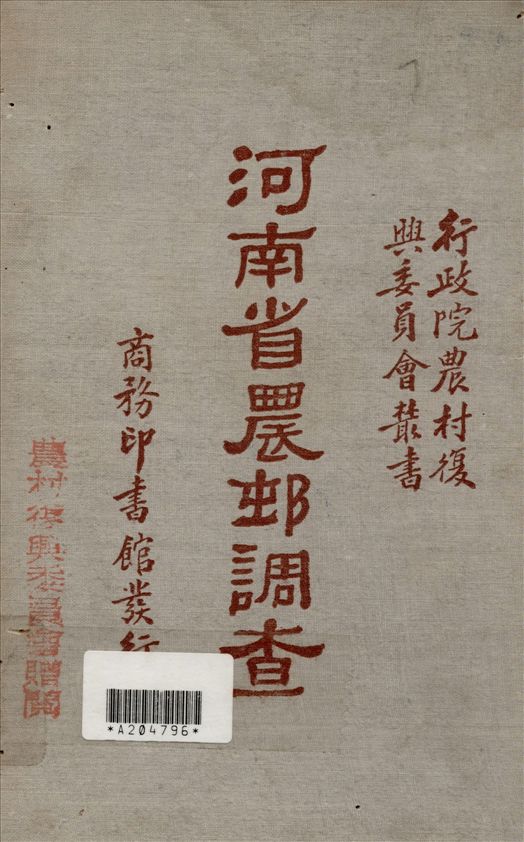 行政院農村復
興委員會叢書
河南省農邨調查
商務印書館發行
農村復興委員會贈閱
*A204796*